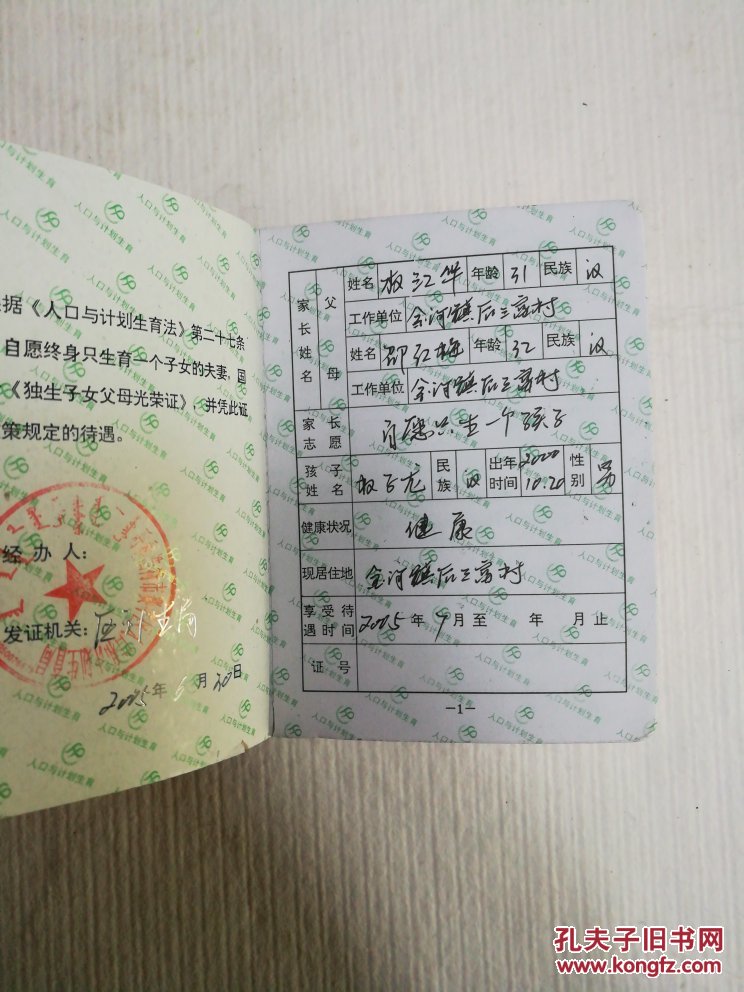 据《人口与计划生育法》第二十七条
自愿终身只生育一个子女的夫妻，国
《独生子女父母光荣证》，并凭此证
策规定的待遇。
经 办 人：
发证机关：区计生局
2005年 月30日
家长姓名
父
姓名 江华 年龄 31 民族 汉
工作单位 金河镇后三富村
母
姓名 邵红梅 年龄 32 民族 汉
工作单位 金河镇后三富村
家长志愿 自愿只生一个孩子
孩子姓名 子龙 民族 汉 出年时间 2000 10.20 性别 男
健康状况 健康
现居住地 金河镇后三富村
享受待遇时间 2005年9月至 年 月止
证号
—1—
人口与计划生育
孔夫子旧书网
www.kongfz.com